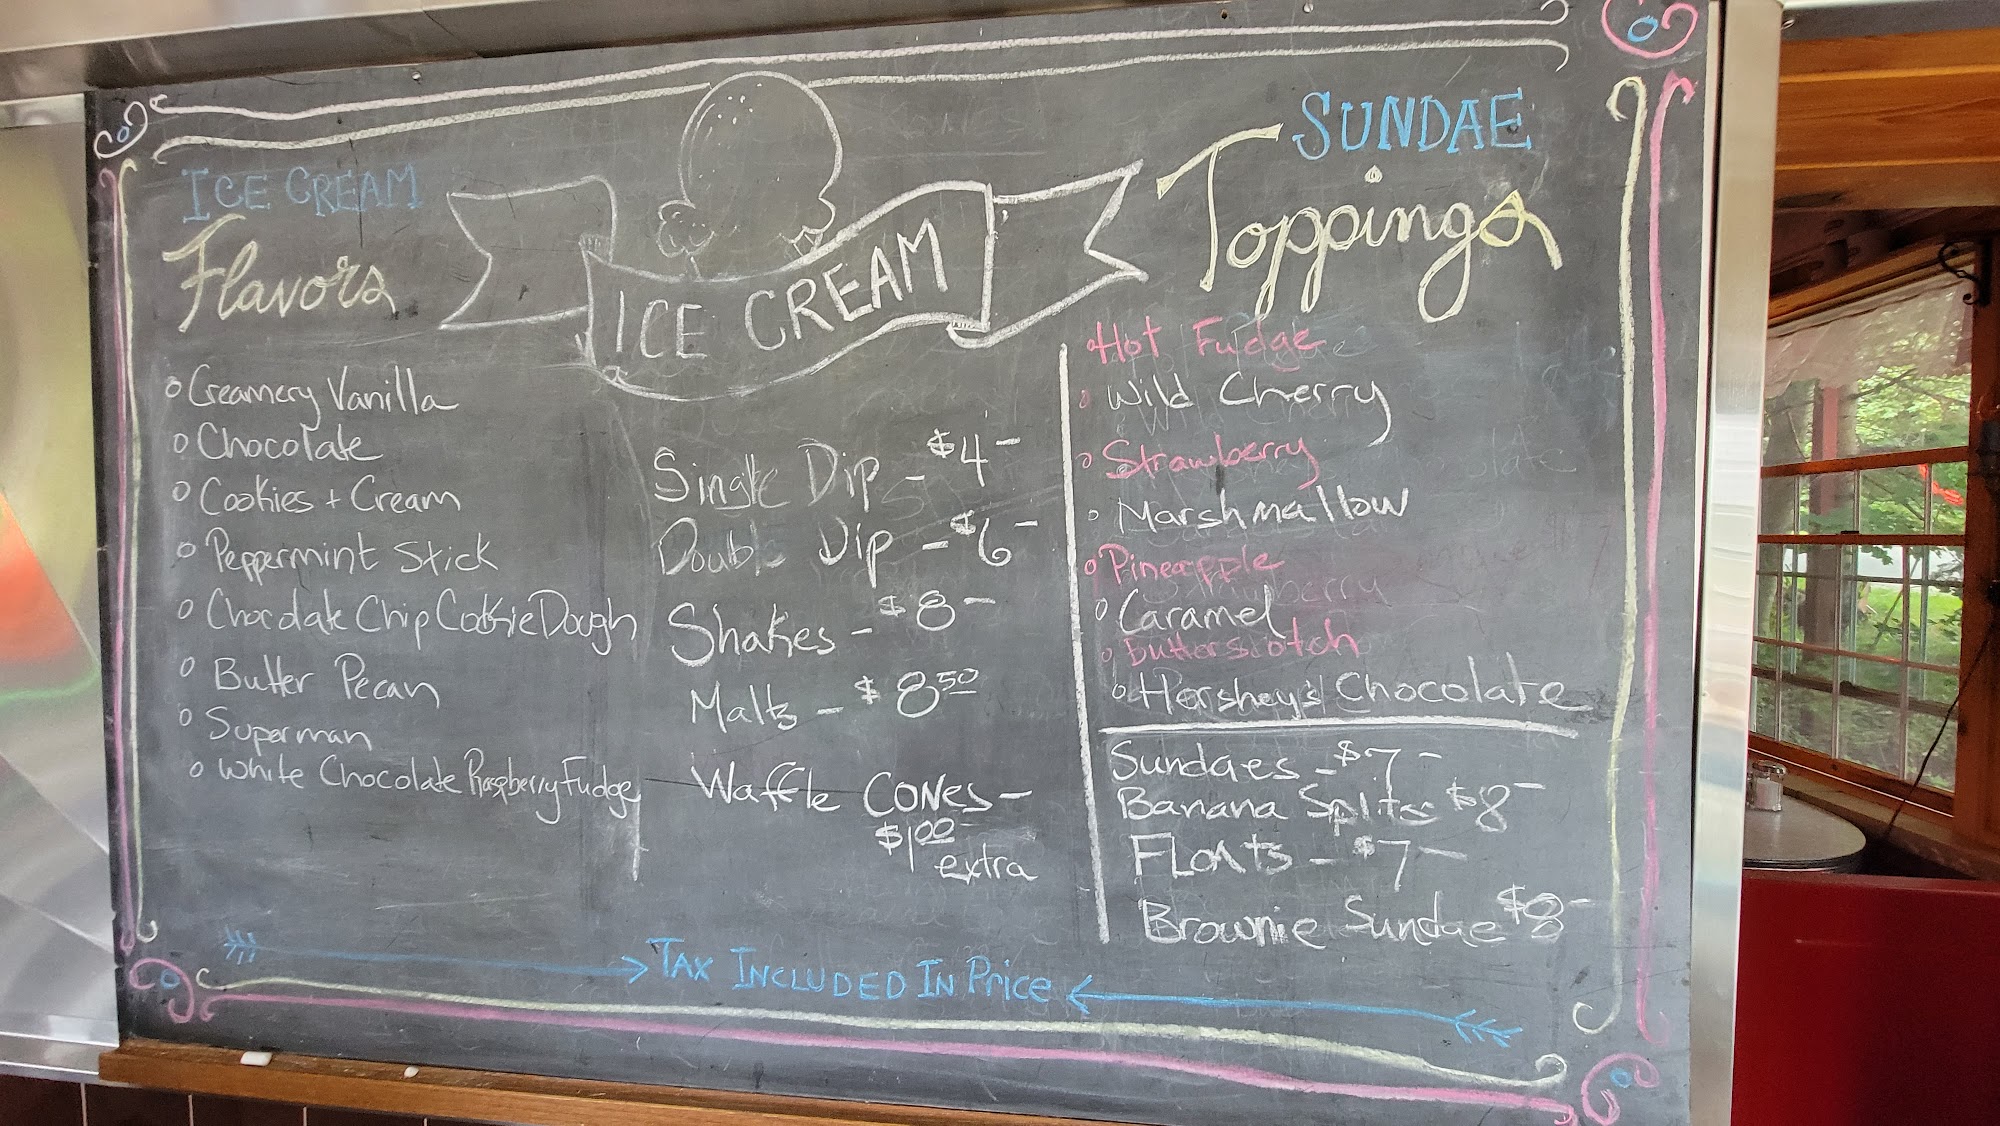 ICE CREAM
Flavors
Creamery Vanilla
Chocolate
Cookies + Cream
Peppermint Stick
Chocolate Chip Cookie Dough
Butter Pecan
Superman
White Chocolate Raspberry Fudge
ICE CREAM
Single Dip - $4-
Double Dip - $6-
Shakes - $8-
Malts - $8.50
Waffle CONES -
$1.00
extra
SUNDAE
Toppings
Hot Fudge
Wild Cherry
Strawberry
Marshmallow
Pineapple
Caramel
Butterscotch
Hershey's Chocolate
Sundaes - $7-
Banana Splits $8-
FLoats - $7-
Brownie Sundae $8-
TAX INCLUDED IN Price